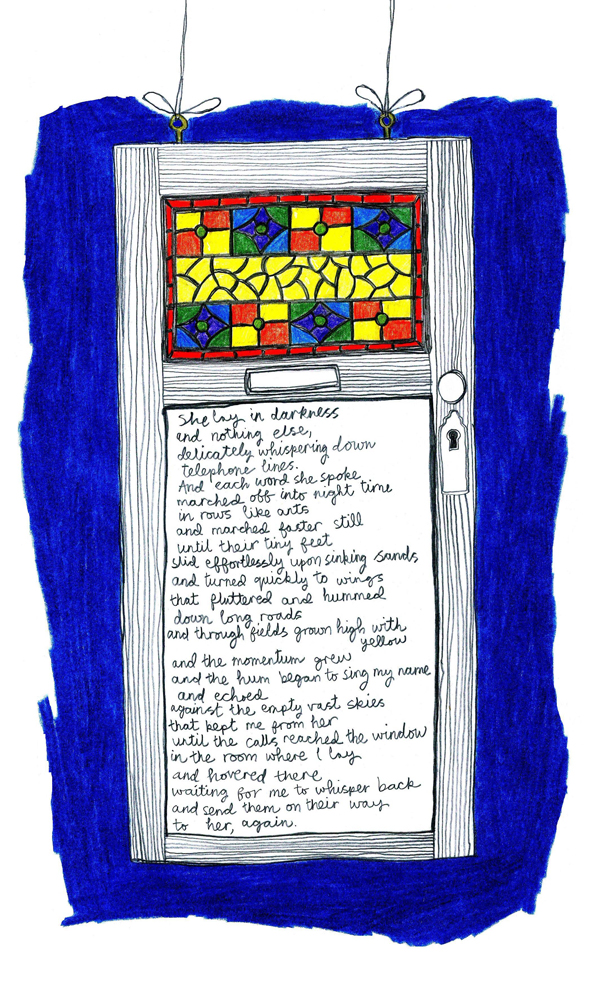 She lay in darkness
and nothing else,
delicately whispering down
telephone lines.
And each word she spoke
marched off into night time
in rows like ants
and marched faster still
until their tiny feet
slid effortlessly upon sinking sands
and turned quickly to wings
that fluttered and hummed
down long roads
and through fields grown high with
yellow
and the momentum grew
and the hum began to sing my name
and echoed
against the empty vast skies
that kept me from her
until the calls reached the window
in the room where I lay
and hovered there
waiting for me to whisper back
and send them on their way
to her, again.